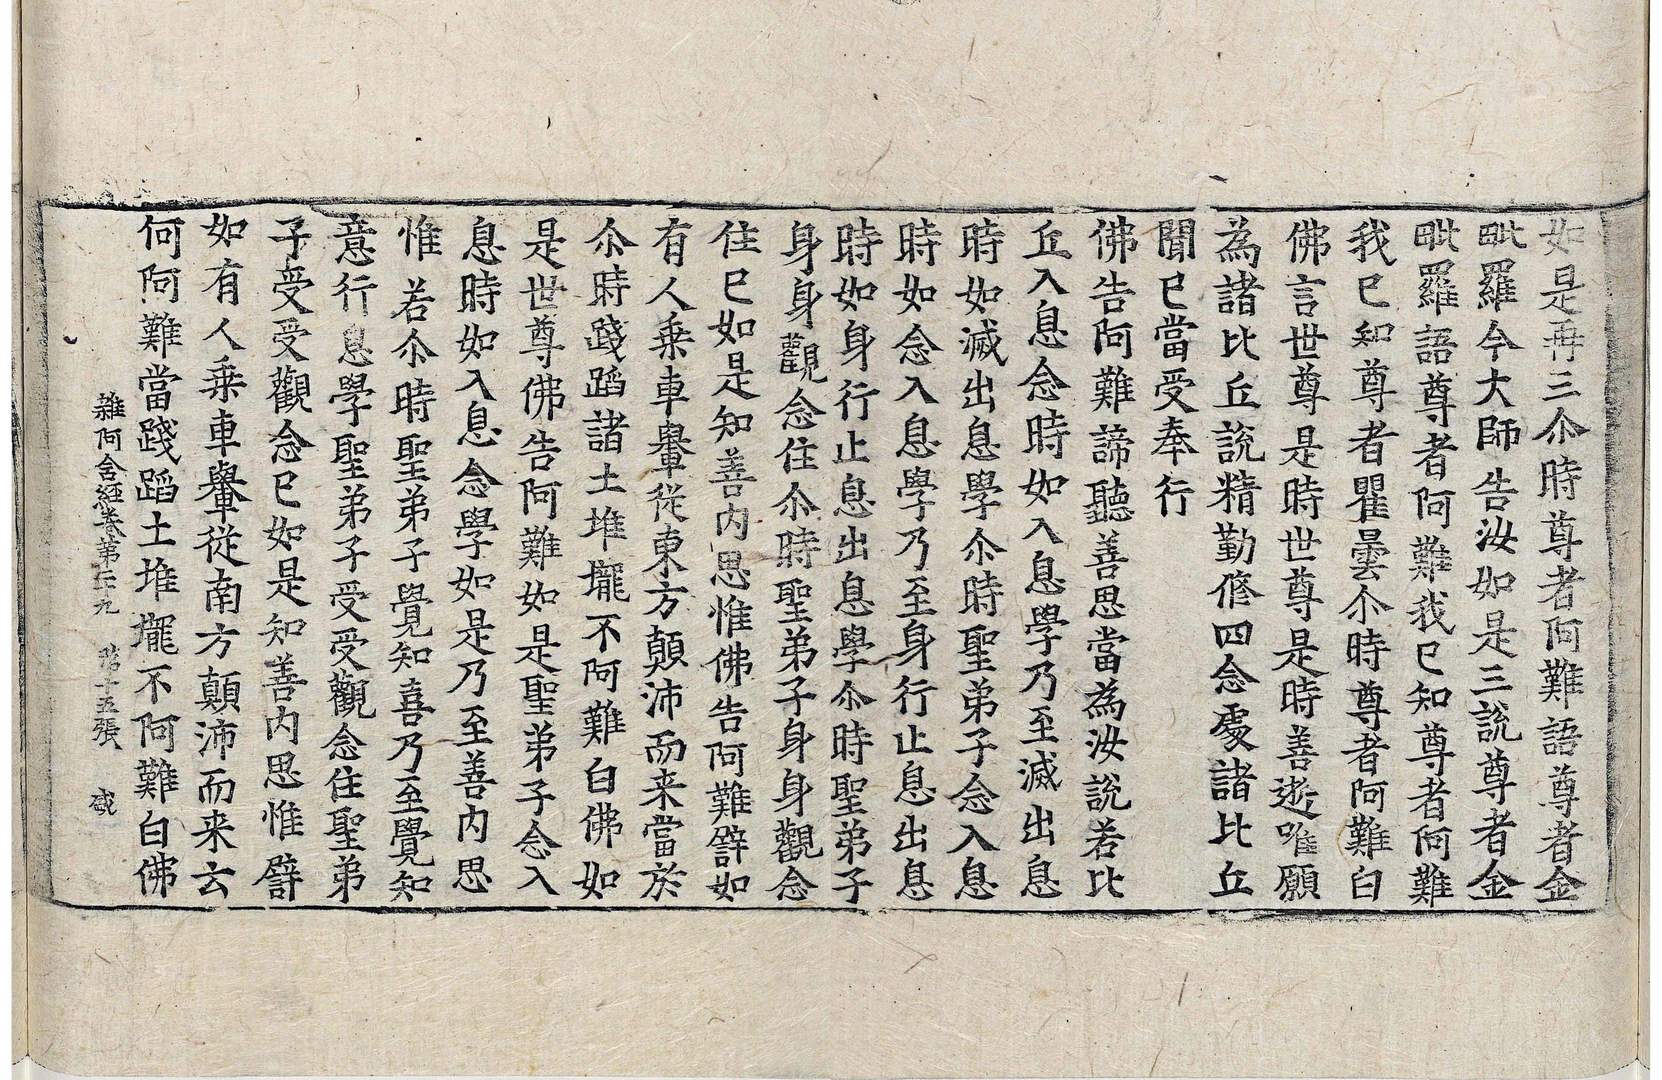 如是再三尒時尊者阿難語尊者金
毗羅今大師告汝如是三說尊者金
毗羅語尊者阿難我已知尊者阿難
我已知尊者瞿曇尒時尊者阿難白
佛言世尊是時世尊是時善逝唯願
為諸比丘說精勤修四念處諸比丘
聞已當受奉行
佛告阿難諦聽善思當為汝說若比
丘入息念時如入息學乃至滅出息
時如滅出息學尒時聖弟子念入息
時如念入息學乃至身行止息出息
時如身行止息出息學尒時聖弟子
身身觀念住尒時聖弟子身身觀念
住已如是知善內思惟佛告阿難譬如
有人乗車轝從東方顛沛而来當於
尒時踐蹈諸土堆壠不阿難白佛如
是世尊佛告阿難如是聖弟子念入
息時如入息念學如是乃至善內思
惟若尒時聖弟子覺知喜乃至覺知
意行息學聖弟子受受觀念住聖弟
子受受觀念已如是知善內思惟譬
如有人乗車轝從南方顛沛而来云
何阿難當踐蹈土堆壠不阿難白佛
雜阿含經卷第二十九 第十五張 盛